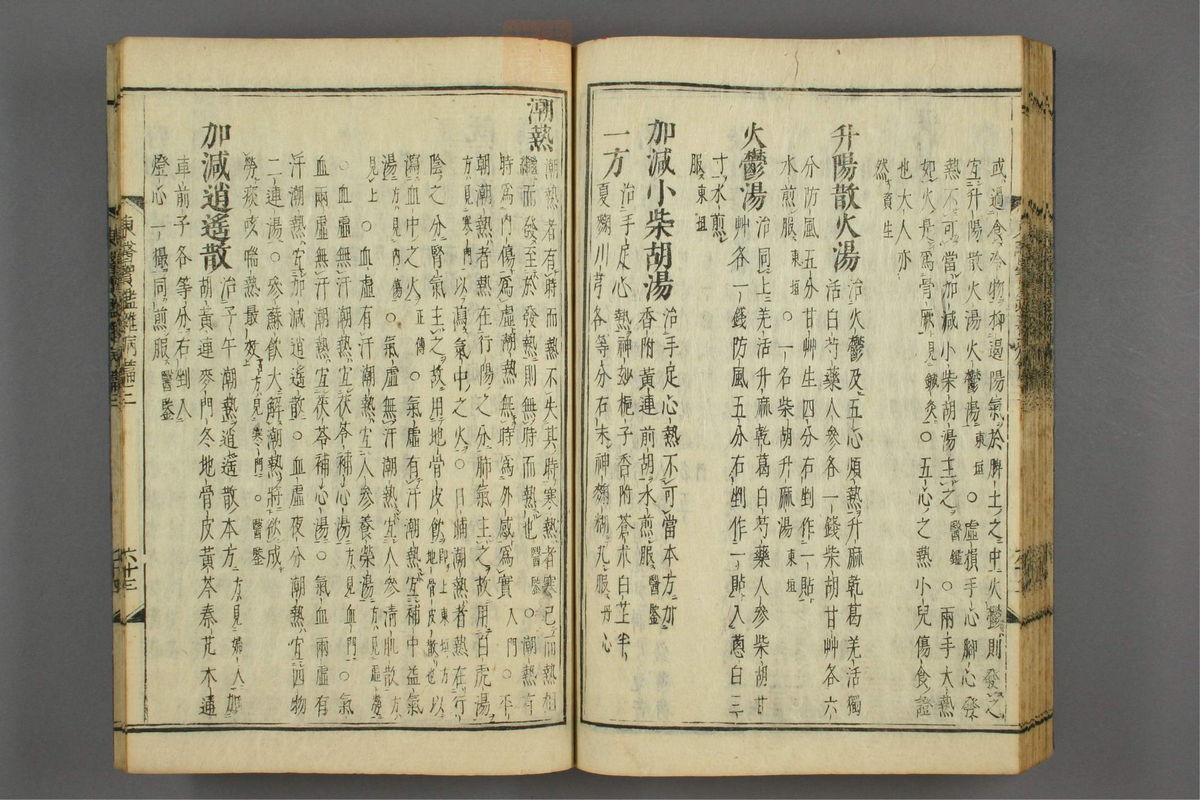 或過食冷物抑遏陽氣於脾土之中火鬱則發之
宜升陽散火湯火鬱湯東垣○虛損手心脚心發
熱不可當加減小柴胡湯主之醫鑑○兩手大熱
如火是爲骨厥見鍼灸○五心之熱小兒傷食證
也大人亦
然資生
升陽散火湯治火鬱及五心煩熱升麻乾葛羌活獨
活白芍藥人參各一錢柴胡甘艸各六
分防風五分甘艸生四分右剉作一貼
水煎服東垣○一名柴胡升麻湯東垣
火鬱湯治同上羌活升麻乾葛白芍藥人參柴胡甘
艸各一錢防風五分右剉作一貼入蔥白三
寸水煎
服東垣
加減小柴胡湯治手足心熱不可當本方加
香附黃連前胡水煎服醫鑑
一方治手足心熱神妙梔子香附蒼朮白芷半
夏麴川芎各等分右末神麴糊丸服丹心
潮熱
潮熱者有時而熱不失其時寒熱者寒已而熱相
繼而發至於發熱則無時而熱也醫鑑○潮熱有
時爲內傷爲虛潮熱無時爲外感爲實入門○平
朝潮熱者熱在行陽之分肺氣主之故用白虎湯
方見寒門以瀉氣中之火○日晡潮熱者熱在行
陰之分腎氣主之故用地骨皮飮卽上東垣方地骨皮散也以
瀉血中之火正傳○氣虛有汗潮熱宜補中益氣
湯方見內傷○氣虛無汗潮熱宜人參淸肌散方
見上○血虛有汗潮熱宜人參養榮湯方見虛勞
○血虛無汗潮熱宜茯苓補心湯方見血門○氣
血兩虛無汗潮熱宜茯苓補心湯○氣血兩虛有
汗潮熱宜加減逍遙散○血虛夜分潮熱宜四物
二連湯○參蘇飮大解潮熱將欲成
勞痰咳喘熱最效方見寒門○醫鑑
加減逍遙散治子午潮熱逍遙散本方方見婦人加
胡黃連麥門冬地骨皮黃芩秦艽木通
車前子各等分右剉入
燈心一撮同煎服醫鑑
東醫寶鑑雜病篇二
六十三